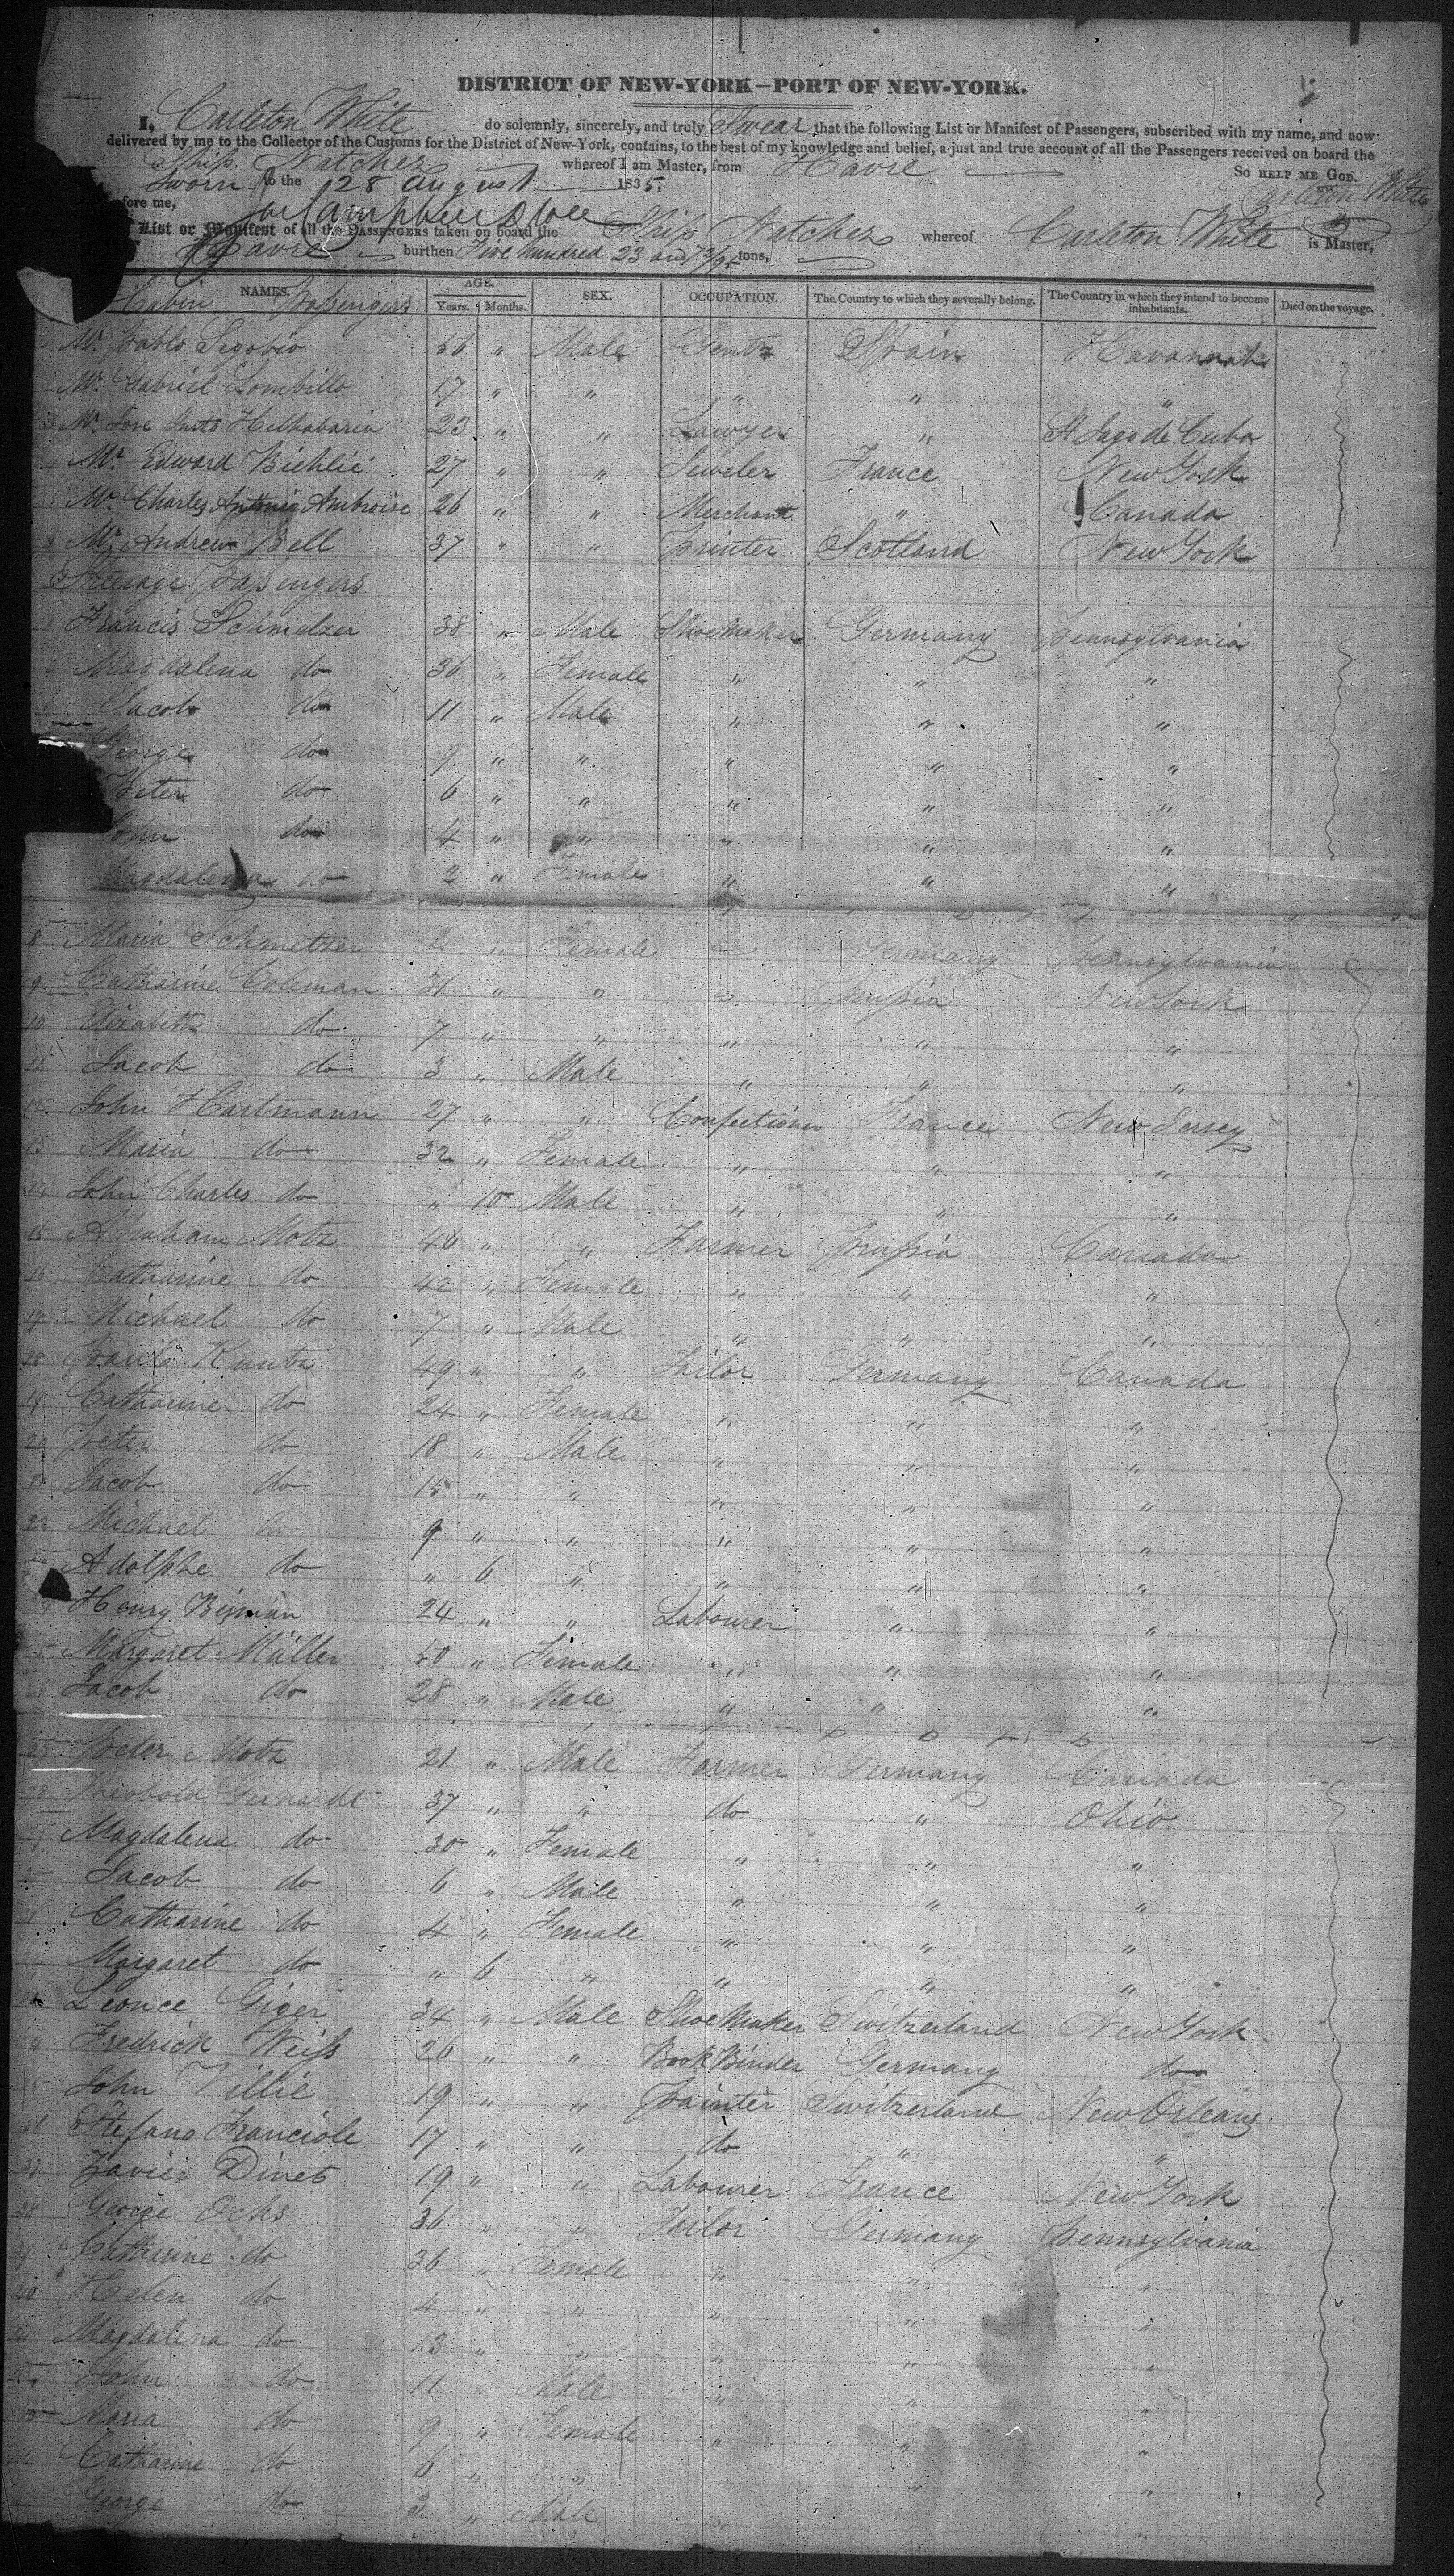 DISTRICT OF NEW-YORK—PORT OF NEW-YORK.
I, Carleton White do solemnly, sincerely, and truly Swear that the following List or Manifest of Passengers, subscribed with my name, and now
delivered by me to the Collector of the Customs for the District of New-York, contains, to the best of my knowledge and belief, a just and true account of all the Passengers received on board the
Ship Natchez whereof I am Master, from Havre
So HELP ME GOD.
Sworn to the 28 August 1835.
Carleton White
fore me,
List or Manifest of all the PASSENGERS taken on board the Ship Natchez whereof Carleton White is Master,
Havre burthen Five hundred 23 and 72/95 tons,
NAMES. AGE. Years. Months. SEX. OCCUPATION. The Country to which they severally belong. The Country in which they intend to become inhabitants. Died on the voyage.
Cabin Passengers
Mr. Pablo Segobio 56 " Male Gentn Spain Havannah
Mr. Gabriel Lombillo 17 " " " " "
3 Mr. Jose Justo 23 " " Lawyer " St Jago de Cuba
4 Mr. Edward Biehlié 27 " " Jeweler France New York
5 Mr. Charles Antonie Ambroise 26 " " Merchant " Canada
6 Mr. Andrew Bell 37 " " Printer Scotland New York
Steerage Passengers
1 Francis Schmelzer 38 " Male ShoeMaker Germany Pennsylvania
2 Magdalena do 36 " Female " " "
Jacob do 11 " Male " " "
George do 9 " " " " "
Peter do 6 " " " " "
John do 4 " " " " "
Magdalena do 2 " Female " " "
8 Maria Schmetzer 2 " Female " Germany Pennsylvania
9 Catharine Coleman 31 " " " Prussia New York
10 Elizabeth do 7 " " " " "
11 Jacob do 3 " Male " " "
12 John Hartmann 27 " " Confectioner France New Jersey
13 Maria do 32 " Female " " "
14 John Charles do " 10 Male " " "
15 Abraham Motz 46 " " Farmer Prussia Canada
16 Catharine do 42 " Female " " "
17 Michael do 7 " Male " " "
18 Paul Kuntz 49 " " Tailor Germany Canada
19 Catharine do 24 " Female " " "
20 Peter do 18 " Male " " "
21 Jacob do 15 " " " " "
22 Michael do 9 " " " " "
Adolphe do " 6 " " " "
Henry Biman 24 " " Labourer " "
Margaret Müller 50 " Female " " "
Jacob do 28 " Male " " "
27 Peter Motz 21 " Male Farmer Germany Canada
28 Theobold Gerhardt 37 " " do " Ohio
Magdalena do 30 " Female " " "
Jacob do 6 " Male " " "
31 Catharine do 4 " Female " " "
Margaret do " 6 " " " "
Leonce Giger 34 " Male ShoeMaker Switzerland New York
34 Fredrick Weiss 26 " " BookBinder Germany do
35 John Villie 19 " " Painter Switzerland New Orleans
36 Stefano Franciole 17 " " do " "
37 Xavier Dinet 19 " " Labourer France New York
38 George Ochs 36 " " Tailor Germany Pennsylvania
39 Catharine do 36 " Female " " "
40 Helen do 4 " " " " "
41 Magdalena do 13 " " " " "
John do 11 " Male " " "
Maria do 9 " Female " " "
Catharine do 6 " " " " "
George do 3 " Male " "